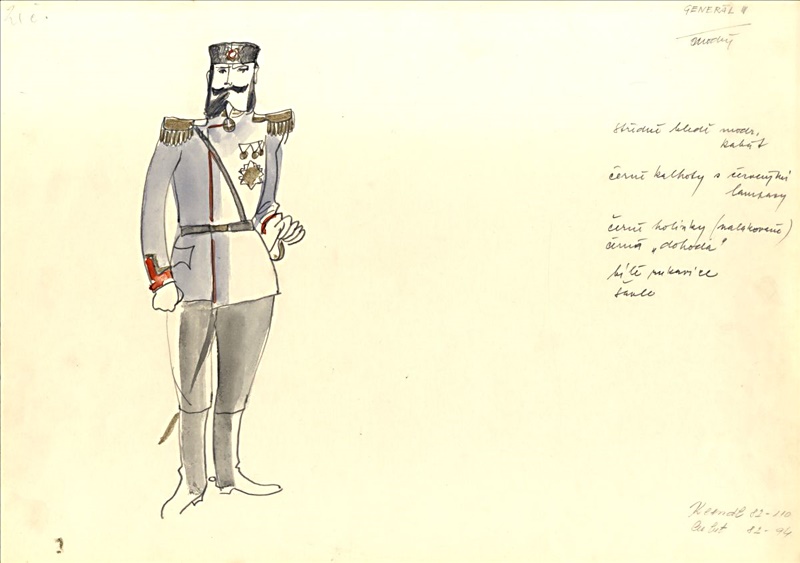 GENERÁL II
modrý
středně bledě modr.
kabát
černé kalhoty s červenými
lampasy
černé holínky (nalakované)
černá „dohoda"
bílé rukavice
šavle
82-110
82-94